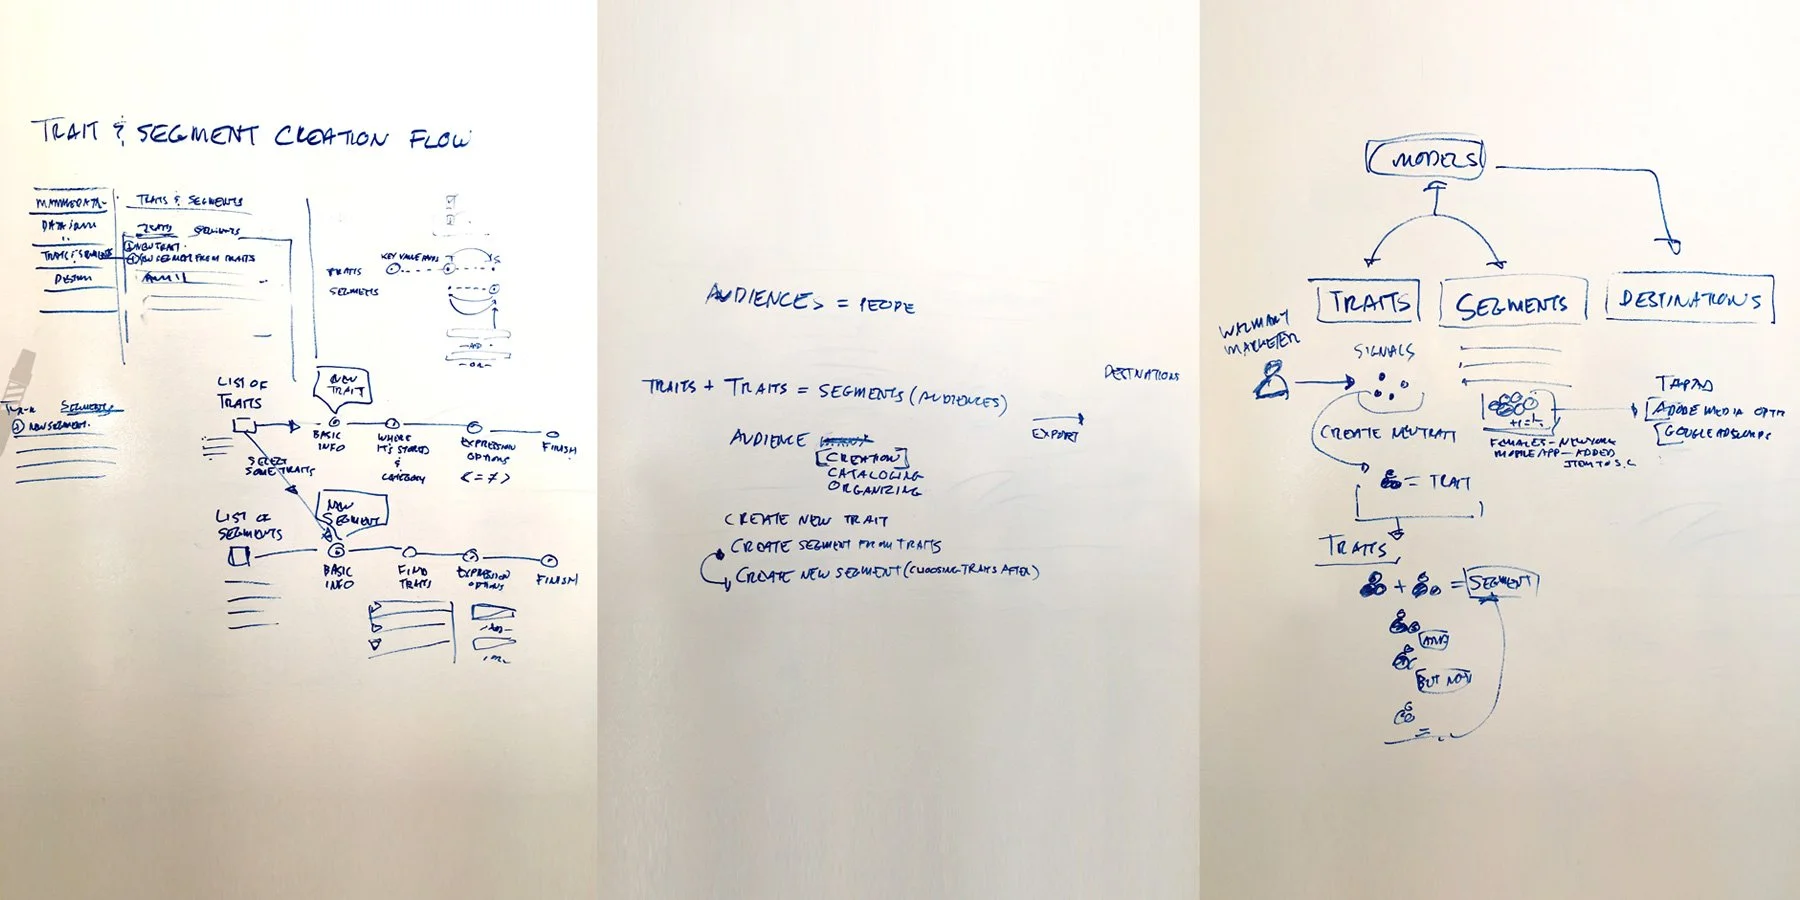 TRAIT & SEGMENT CREATION FLOW
TRAITS & SEGMENTS
TRAITS SEGMENTS
NEW TRAIT
NEW SEGMENT FROM TRAITS
DESIGN
KEY VALUE PAIRS
TRAITS
SEGMENTS
-AND-
-OR-
SEGMENTS
NEW SEGMENT
LIST OF
TRAITS
NEW
TRAIT
BASIC
INFO
WHERE
IT'S STORED
&
CATEGORY
EXPRESSION
OPTIONS
< = ≠ >
FINISH
SELECT
SOME TRAITS
NEW
SEGMENT
LIST OF
SEGMENTS
BASIC
INFO
FIND
TRAITS
EXPRESSION
OPTIONS
FINISH
-AND-
-OR-
AUDIENCES = PEOPLE
TRAITS + TRAITS = SEGMENTS (AUDIENCES)
DESTINATIONS
EXPORT
AUDIENCE
CREATION
CATALOGING
ORGANIZING
CREATE NEW TRAIT
CREATE SEGMENT FROM TRAITS
CREATE NEW SEGMENT (CHOOSING TRAITS AFTER)
MODELS
TRAITS
SEGMENTS
DESTINATIONS
WALMART
MARKETER
SIGNALS
CREATE NEW TRAIT
= TRAIT
FEMALES - NEW YORK
MOBILE APP - ADDED
ITEM TO S.C.
TAPAD
ADOBE MEDIA OPTM
TRAITS
+ = SEGMENT
AND
BUT NOT
=